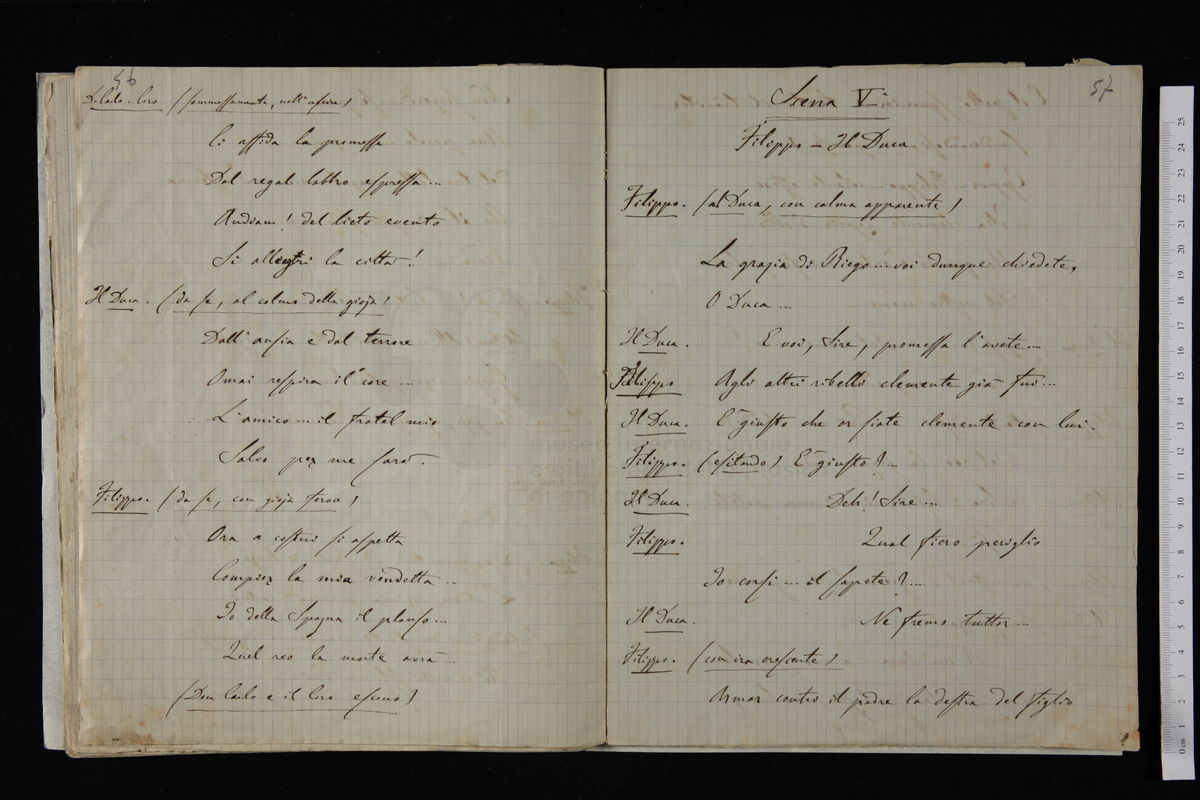 56
D. Carlo. Coro (sommessamente, nell'uscire)
Ci affida la promessa
Dal regal labbro espressa...
Andiam! del lieto evento
Si allegri la città!
Il Duca. (da se, al colmo della gioja)
Dall'ansia e dal terrore
Omai respira il core...
L'amico... il fratel mio
Salvo per me sarà.
Filippo. (da se, con gioja feroce)
Ora a costui si aspetta
Compier la mia vendetta...
Io della Spagna il plauso...
Quel reo la morte avrà...
(Don Carlo e il Coro escono)
57
Scena V.
Filippo - Il Duca
Filippo. (al Duca, con calma apparente)
La grazia di Riego... voi dunque chiedete,
O Duca...
Il Duca. E voi, Sire, promessa l'avete.
Filippo Agli altri ribelli clemente già fui...
Il Duca. È giusto che or siate clemente con lui.
Filippo. (esitando) È giusto?...
Il Duca. Deh! Sire...
Filippo. Qual fiero periglio
Io corsi... il sapete?...
Il Duca. Ne fremo tuttor...
Filippo. (con ira crescente)
Armar contro il padre la destra del figlio